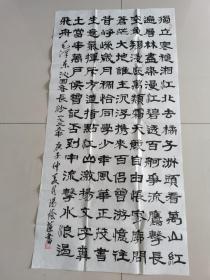 獨立寒穐湘江北去橘子洲頭看萬山紅
遍層林盡染漫江碧透百舸爭流鷹擊長
空魚翔淺底萬類霜天競自由悵寥廓問
蒼茫大地誰主沉浮携來百侣曾游憶往
昔崢嶸歲月稠恰同學少年風華正茂書
生意氣揮斥方遒指點江山激揚文字糞
土當年萬戶侯曾記否到中流擊水浪遏
飛舟 毛澤東沁園春長沙一九二五年 庚子仲夏月湯書